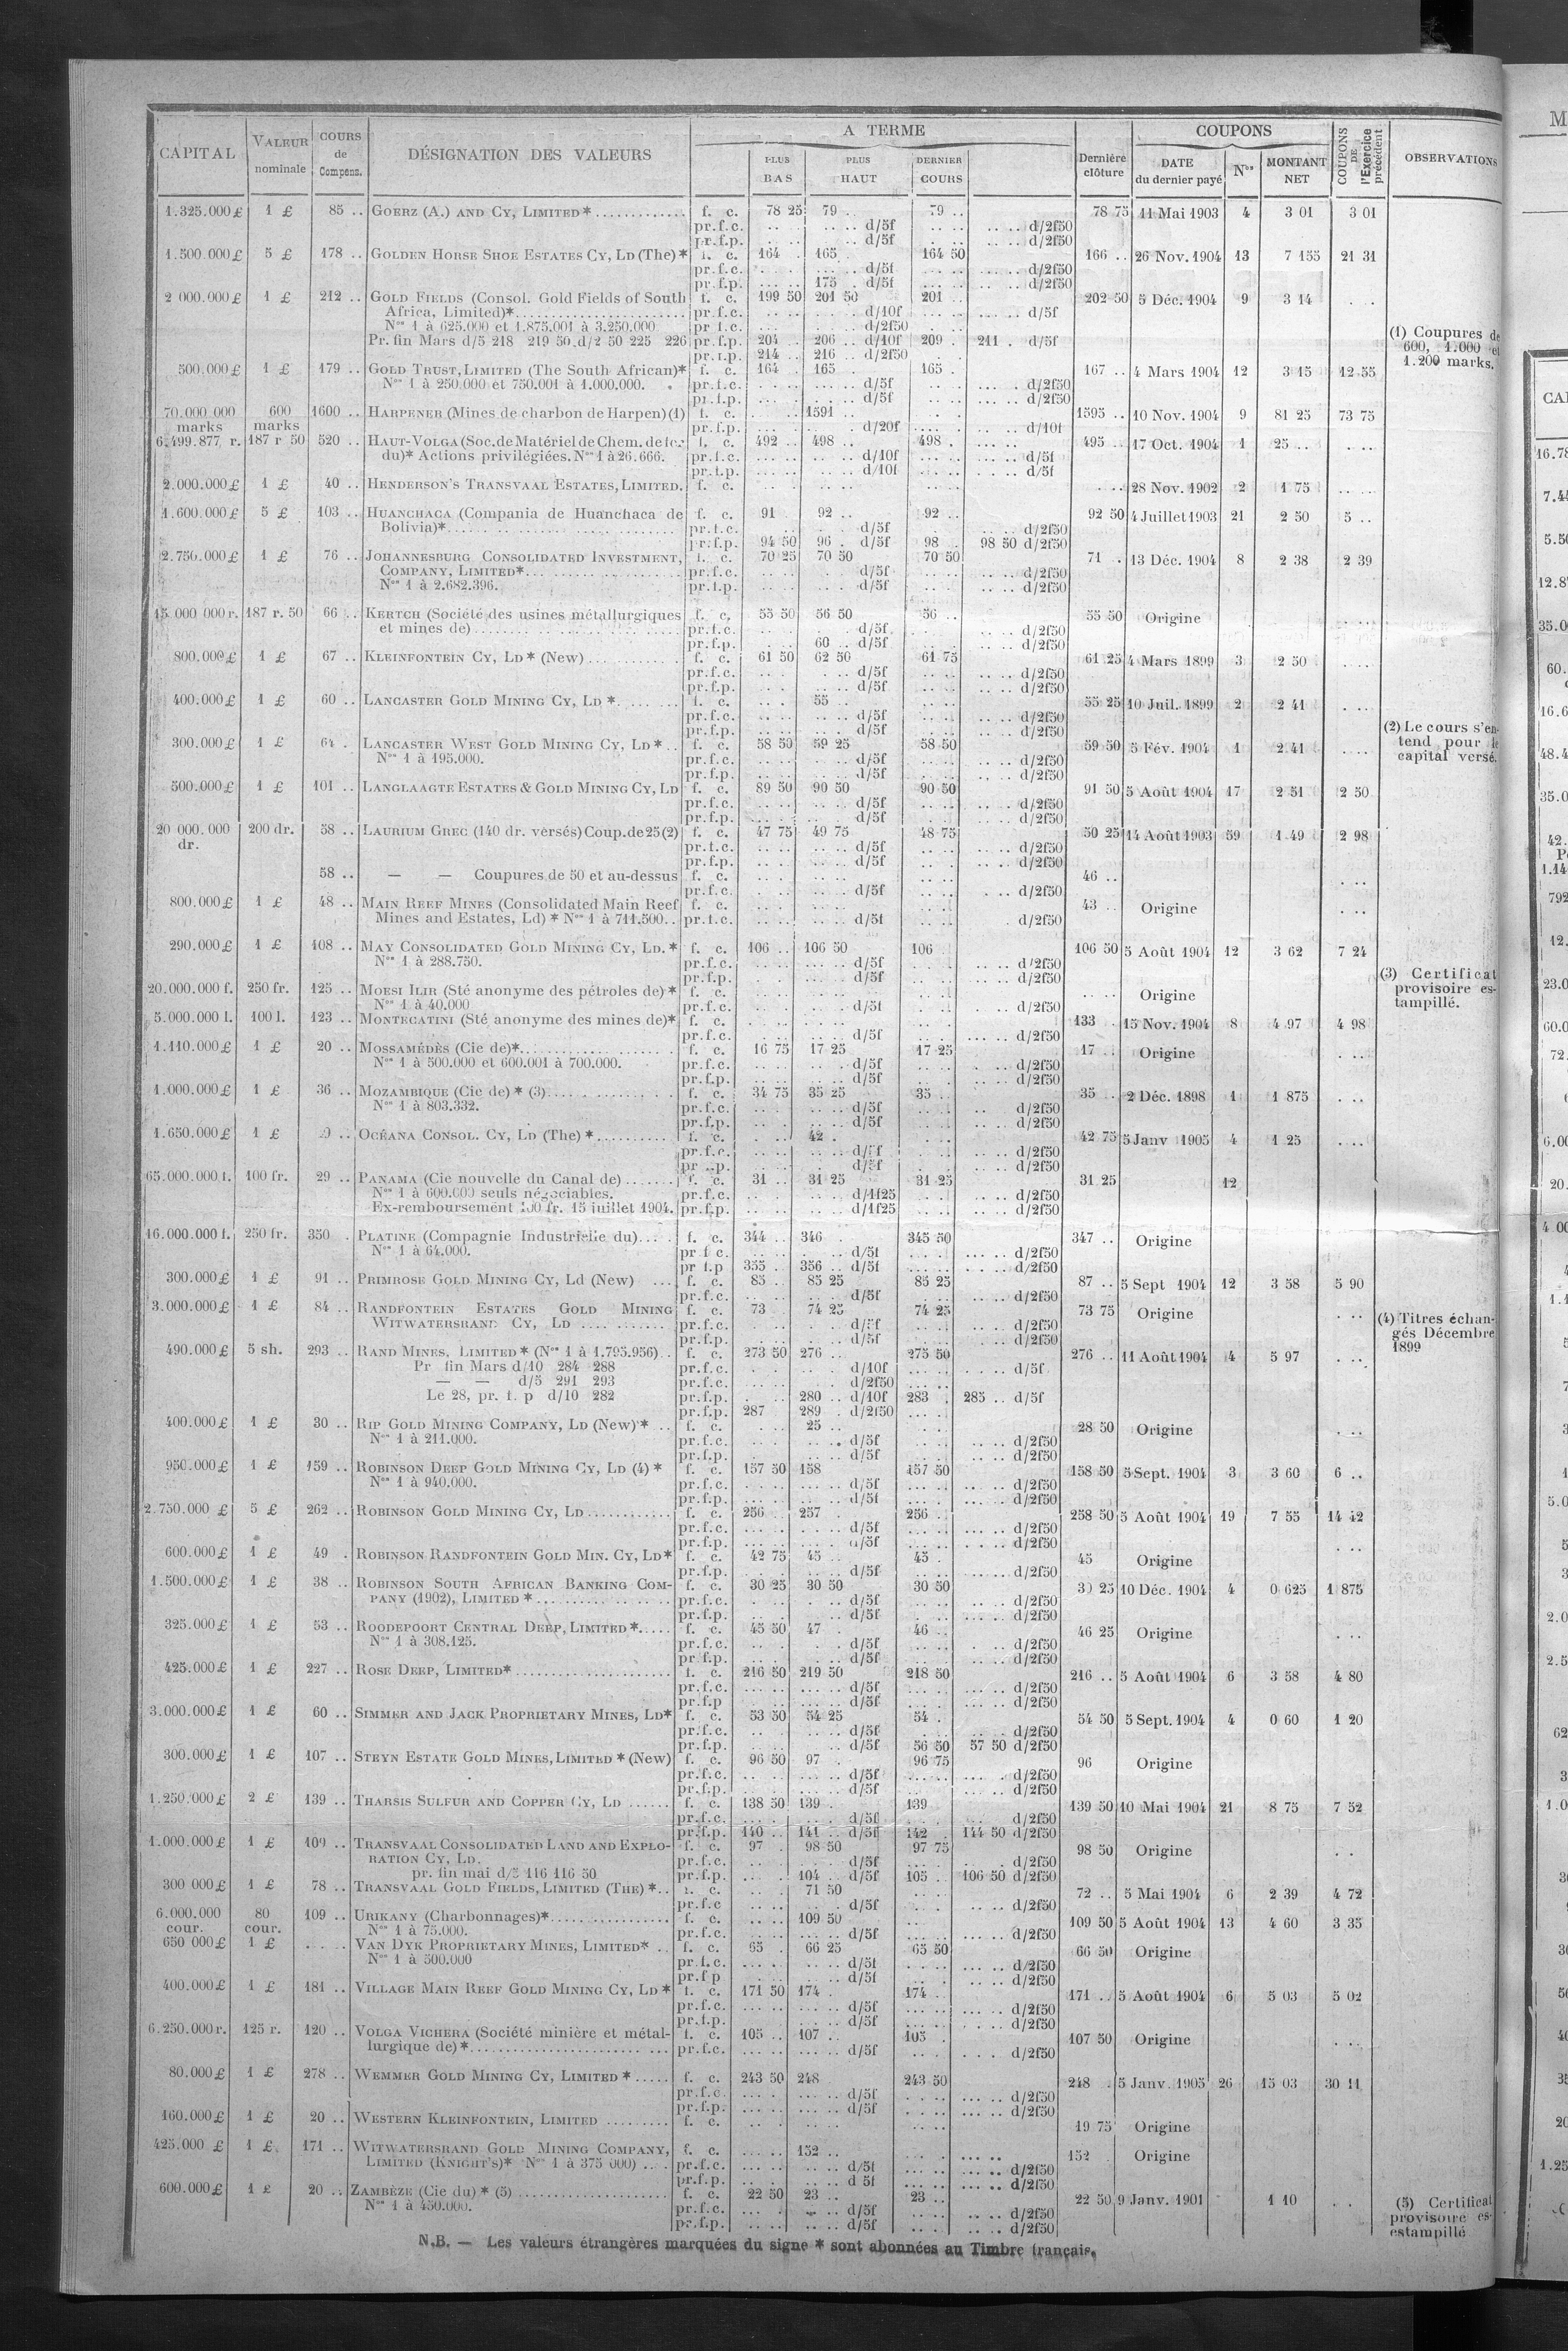 CAPITAL | VALEUR nominale | COURS de Compens. | DÉSIGNATION DES VALEURS | A TERME | PLUS BAS | PLUS HAUT | DERNIER COURS | Dernière clôture | COUPONS | DATE du dernier payé | Nos | MONTANT NET | COUPONS DE l'Exercice précédent | OBSERVATIONS
1.325.000 £ 1 £ 85 .. GOERZ (A.) AND CY, LIMITED * f. c. 78 25 79 .. 79 .. 78 75 11 Mai 1903 4 3 01 3 01
pr.f.c. d/5f d/2f50
pr.f.p. d/5f d/2f50
1.500.000 £ 5 £ 178 .. GOLDEN HORSE SHOE ESTATES CY, LD (The) * f. c. 164 . 165 164 50 166 .. 26 Nov. 1904 13 7 155 21 31
pr.f.c. d/5f d/2f50
pr.f.p. 175 d/5f d/2f50
2 000.000 £ 1 £ 212 .. GOLD FIELDS (Consol. Gold Fields of South f. c. 199 50 201 50 201 .. 202 50 5 Déc. 1904 9 3 14
Africa, Limited)* pr.f.c. d/10f d/5f
Nos 1 à 625.000 et 1.875.001 à 3.250.000 pr f.c. d/2f50
Pr. fin Mars d/5 218 219 50 d/2 50 225 226 pr.f.p. 204 .. 206 .. d/10f 209 . 211 . d/5f
pr.f.p. 214 .. 216 .. d/2f50
500.000 £ 1 £ 179 .. GOLD TRUST, LIMITED (The South African)* f. c. 164 165 165 . 167 .. 4 Mars 1904 12 3 15 12 55
Nos 1 à 250.000 et 750.001 à 1.000.000. pr.f.c. d/5f d/2f50
pr.f.p. d/5f d/2f50
(1) Coupures de
600, 1.000 et
1.200 marks.
70.000 000 marks 600 marks 1600 .. HARPENER (Mines de charbon de Harpen) (1) f. c. 1591 1595 .. 10 Nov. 1904 9 81 25 73 75
pr.f.p. d/20f d/10f
6.499.877 r. 187 r 50 520 .. HAUT-VOLGA (Soc. de Matériel de Chem. de fer f. c. 492 .. 498 .. 498 . 495 .. 17 Oct. 1904 1 25 ..
du)* Actions privilégiées. Nos 1 à 26.666. pr.f.c. d/10f d/5f
pr.f.p. d/10f d/5f
2.000.000 £ 1 £ 40 .. HENDERSON'S TRANSVAAL ESTATES, LIMITED. f. c. 28 Nov. 1902 2 1 75
1.600.000 £ 5 £ 103 .. HUANCHACA (Compania de Huanchaca de f. c. 91 . 92 .. 92 .. 92 50 4 Juillet 1903 21 2 50 5 ..
Bolivia)* pr.f.c. d/5f d/2f50
pr.f.p. 94 50 96 . d/5f 98 .. 98 50 d/2f50
2.750.000 £ 1 £ 76 .. JOHANNESBURG CONSOLIDATED INVESTMENT, f. c. 70 25 70 50 70 50 71 . 13 Déc. 1904 8 2 38 2 39
COMPANY, LIMITED* pr.f.c. d/5f d/2f50
Nos 1 à 2.682.396. pr.f.p. d/5f d/2f50
15.000 000 r. 187 r. 50 66 .. KERTCH (Société des usines métallurgiques f. c. 55 50 56 50 56 .. 55 50 Origine
et mines de) pr.f.c. d/5f d/2f50
pr.f.p. 60 .. d/5f d/2f50
800.000 £ 1 £ 67 .. KLEINFONTEIN CY, LD * (New) f. c. 61 50 62 50 61 75 61 25 4 Mars 1899 3 2 50
pr.f.c. d/5f d/2f50
pr.f.p. d/5f d/2f50
400.000 £ 1 £ 60 .. LANCASTER GOLD MINING CY, LD * f. c. 55 .. 55 25 10 Juil. 1899 2 2 41
pr.f.c. d/5f d/2f50
pr.f.p. d/5f d/2f50
300.000 £ 1 £ 64 . LANCASTER WEST GOLD MINING CY, LD * f. c. 58 50 59 25 58 50 59 50 5 Fév. 1904 1 2 41
Nos 1 à 195.000. pr.f.c. d/5f d/2f50
pr.f.p. d/5f d/2f50
(2) Le cours s'en-
tend pour le
capital versé.
500.000 £ 1 £ 101 .. LANGLAAGTE ESTATES & GOLD MINING CY, LD f. c. 89 50 90 50 90 50 91 50 5 Août 1904 17 2 51 2 50
pr.f.c. d/5f d/2f50
pr.f.p. d/5f d/2f50
20 000.000 dr. 200 dr. 58 .. LAURIUM GREC (140 dr. versés) Coup. de 25 (2) f. c. 47 75 49 75 48 75 50 25 14 Août 1903 59 1 49 2 98
pr.f.c. d/5f d/2f50
pr.f.p. d/5f d/2f50
58 .. — — Coupures de 50 et au-dessus f. c. 46 ..
pr.f.c. d/5f d/2f50
800.000 £ 1 £ 48 .. MAIN REEF MINES (Consolidated Main Reef f. c. 43 .. Origine
Mines and Estates, Ld) * Nos 1 à 711.500 pr.f.c. d/5f d/2f50
290.000 £ 1 £ 108 .. MAY CONSOLIDATED GOLD MINING CY, LD. * f. c. 106 .. 106 50 106 106 50 5 Août 1904 12 3 62 7 24
Nos 1 à 288.750. pr.f.c. d/5f d/2f50
pr.f.p. d/5f d/2f50
(3) Certificat
provisoire es-
tampillé.
20.000.000 f. 250 fr. 125 .. MOESI ILIR (Sté anonyme des pétroles de) * f. c. Origine
Nos 1 à 40.000 pr.f.c. d/5f d/2f50
5.000.000 l. 100 l. 123 .. MONTECATINI (Sté anonyme des mines de)* f. c. 133 . 15 Nov. 1904 8 4 97 4 98
pr.f.c. d/5f d/2f50
1.110.000 £ 1 £ 20 .. MOSSAMÉDÈS (Cie de)* f. c. 16 75 17 25 17 25 17 .. Origine
Nos 1 à 500.000 et 600.001 à 700.000. pr.f.c. d/5f d/2f50
pr.f.p. d/5f d/2f50
1.000.000 £ 1 £ 36 .. MOZAMBIQUE (Cie de) * (3) f. c. 34 75 35 25 35 .. 35 .. 2 Déc. 1898 1 1 875
Nos 1 à 803.332. pr.f.c. d/5f d/2f50
pr.f.p. d/5f d/2f50
1.650.000 £ 1 £ OCÉANA CONSOL. CY, LD (The) * f. c. 42 . 42 75 5 Janv 1905 4 1 25
pr.f.c. d/5f d/2f50
d/5f d/2f50
65.000.000 f. 100 fr. 29 .. PANAMA (Cie nouvelle du Canal de) f. c. 31 .. 31 25 31 25 31 25 12
Nos 1 à 600.000 seuls négociables. pr.f.c. d/1f25 d/2f50
Ex-remboursement 100 fr. 15 juillet 1904. pr.f.p. d/1f25 d/2f50
16.000.000 f. 250 fr. 350 . PLATINE (Compagnie Industrielle du) f. c. 344 .. 346 345 50 347 .. Origine
Nos 1 à 64.000. pr f c. d/5f d/2f50
pr f.p 355 .. 356 .. d/5f d/2f50
300.000 £ 1 £ 91 .. PRIMROSE GOLD MINING CY, Ld (New) f. c. 85 .. 85 25 85 25 87 .. 5 Sept 1904 12 3 58 5 90
pr.f.c. d/5f d/2f50
3.000.000 £ 1 £ 84 .. RANDFONTEIN ESTATES GOLD MINING f. c. 73 74 25 74 25 73 75 Origine
WITWATERSRAND CY, LD pr.f.c. d/5f d/2f50
pr.f.p. d/5f d/2f50
(4) Titres échan-
gés Décembre
1899
490.000 £ 5 sh. 293 .. RAND MINES, LIMITED * (Nos 1 à 1.795.956) f. c. 273 50 276 .. 275 50 276 .. 11 Août 1904 4 5 97
Pr fin Mars d/10 284 288 pr.f.c. d/10f d/5f
— — d/5 291 293 pr.f.c. d/2f50
Le 28, pr. f. p d/10 282 pr.f.p. 280 .. d/10f 283 . 285 .. d/5f
pr.f.p. 287 289 . d/2f50
400.000 £ 1 £ 30 .. RIP GOLD MINING COMPANY, LD (New) * f. c. 25 .. 28 50 Origine
Nos 1 à 211.000. pr.f.c. d/5f d/2f50
pr.f.p. d/5f d/2f50
950.000 £ 1 £ 159 .. ROBINSON DEEP GOLD MINING CY, LD (4) * f. c. 157 50 158 157 50 158 50 5 Sept. 1904 3 3 60 6 ..
Nos 1 à 940.000. pr.f.c. d/5f d/2f50
pr.f.p. d/5f d/2f50
2.750.000 £ 5 £ 262 .. ROBINSON GOLD MINING CY, LD f. c. 256 .. 257 . 256 .. 258 50 5 Août 1904 19 7 55 14 42
pr.f.c. d/5f d/2f50
pr.f.p. d/5f d/2f50
600.000 £ 1 £ 49 . ROBINSON RANDFONTEIN GOLD MIN. CY, LD * f. c. 42 75 45 .. 45 . 45 Origine
pr.f.p. d/5f d/2f50
1.500.000 £ 1 £ 38 .. ROBINSON SOUTH AFRICAN BANKING COM- f. c. 30 25 30 50 30 50 30 25 10 Déc. 1904 4 0 625 1 875
PANY (1902), LIMITED * pr.f.c. d/5f d/2f50
pr.f.p. d/5f d/2f50
325.000 £ 1 £ 53 .. ROODEPOORT CENTRAL DEEP, LIMITED * f. c. 45 50 47 . 46 .. 46 25 Origine
Nos 1 à 308.125. pr.f.c. d/5f d/2f50
pr.f.p. d/5f d/2f50
425.000 £ 1 £ 227 .. ROSE DEEP, LIMITED* f. c. 216 50 219 50 218 50 216 .. 5 Août 1904 6 3 58 4 80
pr.f.c. d/5f d/2f50
pr.f.p d/5f d/2f50
3.000.000 £ 1 £ 60 .. SIMMER AND JACK PROPRIETARY MINES, LD * f. c. 53 50 54 25 54 . 54 50 5 Sept. 1904 4 0 60 1 20
pr.f.c. d/5f d/2f50
pr.f.p. d/5f 56 50 57 50 d/2f50
300.000 £ 1 £ 107 .. STEYN ESTATE GOLD MINES, LIMITED * (New) f. c. 96 50 97 . 96 75 96 Origine
pr.f.c. d/5f d/2f50
pr.f.p. d/5f d/2f50
1.250.000 £ 2 £ 139 .. THARSIS SULFUR AND COPPER CY, LD f. c. 138 50 139 . 139 139 50 10 Mai 1904 21 8 75 7 52
pr.f.c. d/5f d/2f50
pr.f.p. 140 .. 141 .. d/5f 142 . 144 50 d/2f50
1.000.000 £ 1 £ 109 .. TRANSVAAL CONSOLIDATED LAND AND EXPLO- f. c. 97 . 98 50 97 75 98 50 Origine
RATION CY, LD. pr.f.c. d/5f d/2f50
pr. fin mai d/5 116 116 50 pr.f.p. 104 .. d/5f 105 .. 106 50 d/2f50
300 000 £ 1 £ 78 .. TRANSVAAL GOLD FIELDS, LIMITED (THE) * f. c. 71 50 72 .. 5 Mai 1904 6 2 39 4 72
pr.f.c d/5f d/2f50
6.000.000 cour. 80 cour. 109 .. URIKANY (Charbonnages)* f. c. 109 50 109 50 5 Août 1904 13 4 60 3 35
Nos 1 à 75.000. pr.f.c. d/5f d/2f50
650 000 £ 1 £ VAN DYK PROPRIETARY MINES, LIMITED * f. c. 65 . 66 25 65 50 66 50 Origine
Nos 1 à 500.000 pr.f.c. d/5f d/2f50
pr.f p d/5f d/2f50
400.000 £ 1 £ 181 .. VILLAGE MAIN REEF GOLD MINING CY, LD * f. c. 171 50 174 . 174 .. 171 .. 5 Août 1904 6 5 03 5 02
pr.f.c. d/5f d/2f50
pr.f.p. d/5f d/2f50
6.250.000 r. 125 r. 120 .. VOLGA VICHERA (Société minière et métal- f. c. 105 .. 107 .. 105 . 107 50 Origine
lurgique de) * pr.f.c. d/5f d/2f50
80.000 £ 1 £ 278 .. WEMMER GOLD MINING CY, LIMITED * f. c. 243 50 248 243 50 248 . 5 Janv. 1905 26 15 03 30 11
pr.f.c. d/5f d/2f50
pr.f.p. d/5f d/2f50
160.000 £ 1 £ 20 .. WESTERN KLEINFONTEIN, LIMITED f. c. 19 75 Origine
425.000 £ 1 £. 171 .. WITWATERSRAND GOLD MINING COMPANY, f. c. 152 .. 152 Origine
LIMITED (KNIGHT'S)* Nos 1 à 375 000) pr.f.c. d/5f d/2f50
pr.f.p. d 5f d/2f50
600.000 £ 1 £ 20 .. ZAMBÈZE (Cie du) * (5) f. c. 22 50 23 .. 23 .. 22 50 9 Janv. 1901 1 10
Nos 1 à 450.000. pr.f.c. d/5f d/2f50
pr.f.p. d/5f d/2f50
(5) Certificat
provisoire es-
estampillé
N.B. — Les valeurs étrangères marquées du signe * sont abonnées au Timbre français.